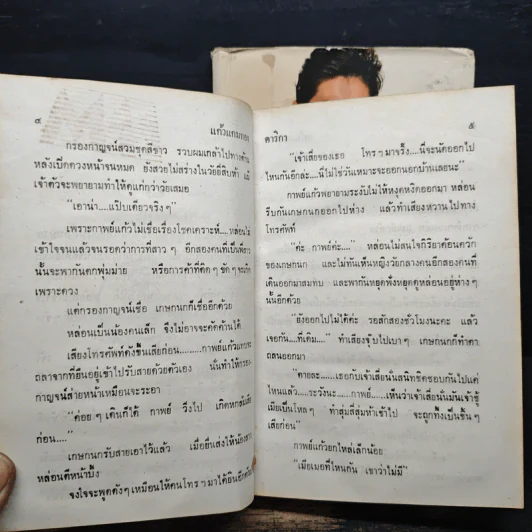 ๔ แก้วแกมทอง
กรองกาญจน์สวมชุดสีขาว รวบผมเกล้าไปทางด้าน
หลังเปิดดวงหน้าจนหมด ยังสวยไม่สร่างในวัยยี่สิบห้า แม้
เจ้าตัวจะพยายามทำให้ดูแก่กว่าวัยเสมอ
"เอาน่า....แป๊บเดียวจริง ๆ"
เพราะกาพย์แก้วไม่เชื่อเรื่องโชคเคราะห์....หล่อนไม่
เข้าใจจนแล้วจนรอดว่าการที่สาว ๆ อีกสองคนที่เป็นพี่สาว
นั้นจะพากันตกพุ่มม่าย หรือการค้าที่ติด ๆ ขัด ๆ จะเกิด
เพราะดวง
แต่กรองกาญจน์เชื่อ เกษกนกก็เชื่ออีกด้วย
หล่อนเป็นน้องคนเล็ก จึงไม่อาจจะคัดค้านได้
เสียงโทรศัพท์ดังขึ้นเสียก่อน.........กาพย์แก้วแทบจะ
ถลาจากที่ยืนอยู่เข้าไปรับสายด้วยตัวเอง นั่นทำให้กรอง
กาญจน์ส่ายหน้าเหมือนจะระอา
"ค่อย ๆ เดินก็ได้ กาพย์ วิ่งไป เกิดหกล้ม
ก่อน....."
เกษกนกรับสายเอาไว้แล้ว เมื่อยื่นส่งให้น้อง
หล่อนตีหน้าบึ้ง
จงใจจะพูดดังๆ เหมือนให้คนโทร ฯ มาได้ยินอีกด้วย
ดาริกา ๕
"เจ้าเสี่ยของเธอ โทร ฯ มาจริ๊ง....นี่จะนัดออกไป
ไหนกันอีกล่ะ....นี่ไม่ใช่วันเหมาะจะออกนอกบ้านเลยนะ"
กาพย์แก้วพยายามระงับไม่ให้หงุดหงิดออกมา หล่อน
รีบกันเกษกนกออกไปห่าง แล้วทำเสียงหวานไปทาง
โทรศัพท์
"ค่ะ กาพย์ค่ะ...." หล่อนไม่สนใจกิริยาค้อนควัก
ของเกษกนก และไม่ทันเห็นหญิงวัยกลางคนอีกสองคนที่
เดินออกมาสมทบ และพากันหยุดฟังหยุดดูหล่อนอยู่ห่าง ๆ
นั้นอีกด้วย
"ยังออกไปไม่ได้ค่ะ รอสักสองชั่วโมงนะคะ แล้ว
เจอกัน....ที่เดิม...." ทำเสียงจุ๊บไปเบา ๆ เกษกนกก็ทำตา
ถลนออกมา
"ตายละ......เธอกับเจ้าเสี่ยนั่นสนิทชิดชอบกันไปแค่
ไหนแล้ว.....ระวังนะ.....กาพย์....เห็นว่าเจ้าเสี่ยนั่นมันเจ้าชู้
เมียเป็นโหล ๆ ทำสุ่มสี่สุ่มห้าเข้าไป จะถูกทิ้งเป็นชิ้น ๆ
เสียก่อน"
กาพย์แก้วยกไหล่เล็กน้อย
"เมียเมอที่ไหนกัน เขาว่าไม่มี"